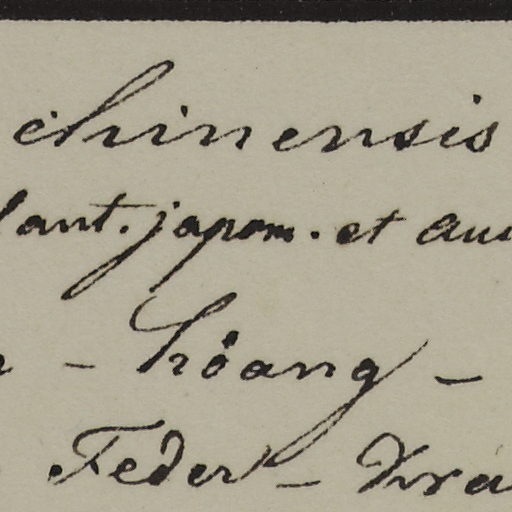 chinensis
lant. japon. et au
- hôang -
Feder - Kra